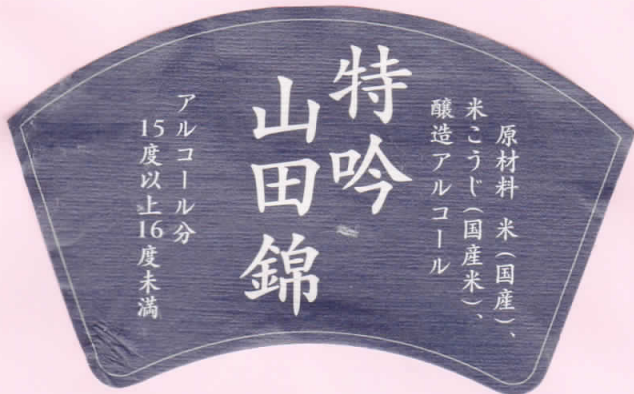 原材料 米(国産)、
米こうじ(国産米)、
醸造アルコール
特吟
山田錦
アルコール分
15度以上16度未満